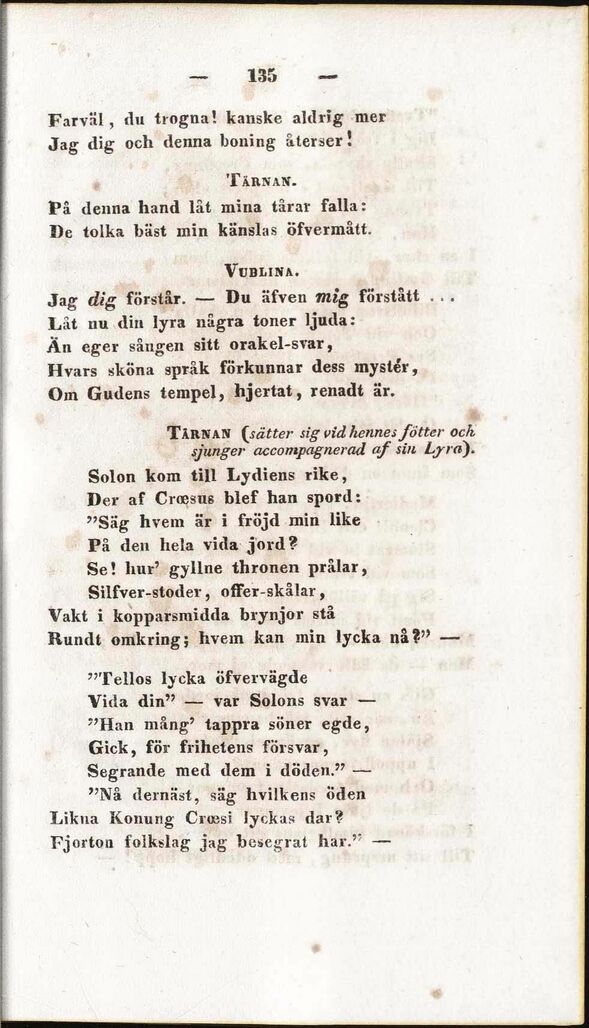 — 135 —
Farväl, du trogna! kanske aldrig mer
Jag dig och denna boning återser!
TÄRNAN.
På denna hand låt mina tårar falla:
De tolka bäst min känslas öfvermått.
VUBLINA.
Jag dig förstår. — Du äfven mig förstått . . .
Låt nu din lyra några toner ljuda:
Än eger sången sitt orakel-svar,
Hvars sköna språk förkunnar dess mystér,
Om Gudens tempel, hjertat, renadt är.
TÄRNAN (sätter sig vid hennes fötter och
sjunger accompagnerad af sin Lyra).
Solon kom till Lydiens rike,
Der af Crœsus blef han spord:
”Säg hvem är i fröjd min like
På den hela vida jord?
Se! hur’ gyllne thronen prålar,
Silfver-stoder, offer-skålar,
Vakt i kopparsmidda brynjor stå
Rundt omkring; hvem kan min lycka nå?” —
”Tellos lycka öfvervägde
Vida din” — var Solons svar —
”Han mång’ tappra söner egde,
Gick, för frihetens försvar,
Segrande med dem i döden.” —
”Nå dernäst, säg hvilkens öden
Likna Konung Crœsi lyckas dar?
Fjorton folkslag jag besegrat har.” —